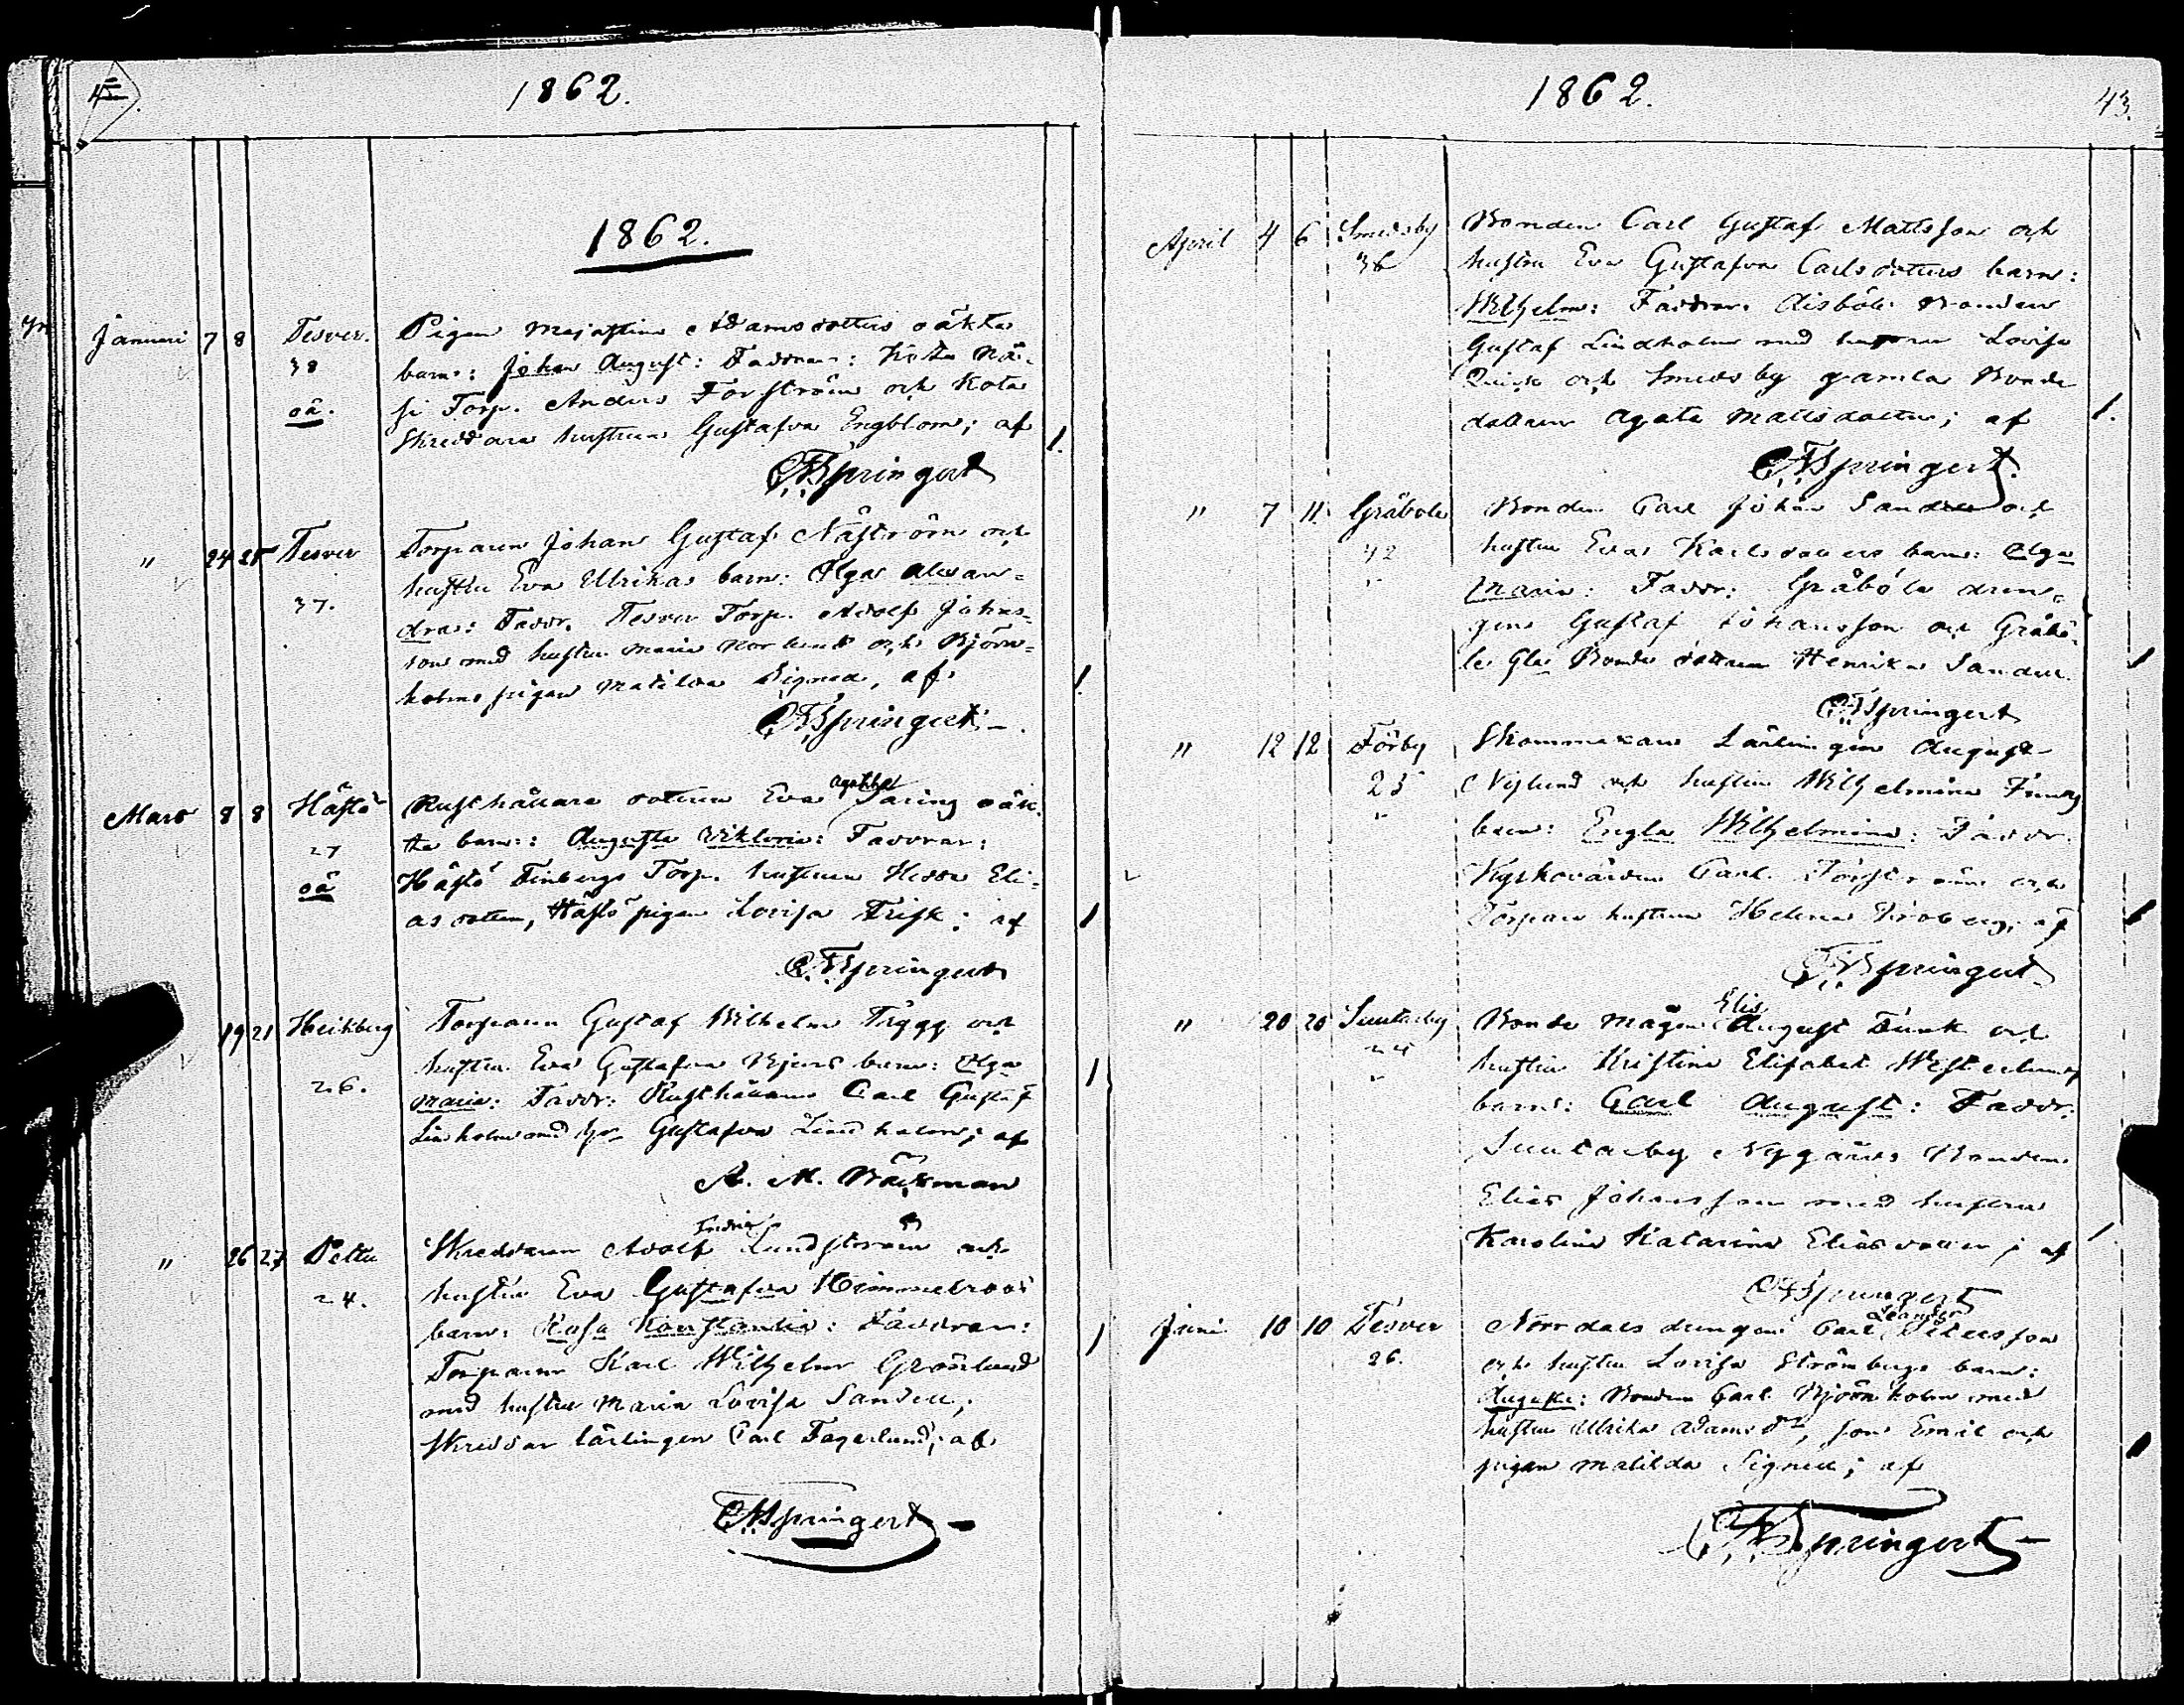 1862.
1862.
Januari 7 8 Tesver. Pigan Majastina Adamsdotters oäkta
38 barn: Johan August: Faddrar: Kota Nä-
oä. si Torp. Anders Forström och Kota
Skreddare hustrun Gustafva Engblom; af
C.F. Springert
" 24 25 Tesver Torparen Johan Gustaf Näström och
37. hustru Eva Ulrikas barn: Olga Alexan=
dra: Faddr. Tesver Torp. Adolf Johns-
son med hustru Maria Norlund och Björn=
holms pigan Matilda Signed, af
C.F. Springert.
Mars 8 8 Hästö Rusthållare dottren Eva Agatha Saring oäk
27 ta barn: Augusta Viktoria: Faddrar:
oä Hästö Finbergs Torp. hustrun Hedda Eli-
as dotter, Hästö pigan Lovisa Frisk; af
C.F. Springert
19 21 Heikberg Torparen Gustaf Wilhelm Trygg och
26. hustru Eva Gustafva Bjurs barn: Olga
Maria: Faddr: Rusthållaren Carl Gustaf
Linholm med Gustafva Lindholm; af
A. M. Bäckman
" 26 27 Pettu Skreddaren Adolf Fredric Lundström och
24. hustru Eva Gustafva Himmelroos
barn: Rosa Konstantia: Faddrar:
Torparen Karl Wilhelm Grönlund
med hustru Maria Lovisa Sandell,
Skreddar lärlingen Carl Fagerlund; af
C.F. Springert
1862. 43.
April 4 6 Smedsby Bonden Carl Gustaf Mattsson och
36 hustru Eva Gustafva Carlsdotters barn:
Wilhelm: Faddrar: Aisböle Bonden
Gustaf Lindholm med hustru Lovisa
och Smedsby gamla Bonde
dottren Agata Mattsdotter; af
C.F. Springert.
" 7 11. Gräböle Bonden Carl Johan Sandell och
42 hustru Eva Karlsdotters barn: Olga
Maria: Faddr: Gräböle dren-
gen Gustaf Johansson och Gräbö-
le Gla Bonde dottren Henrika Sandell.
C.F. Springert
" 12 12 Förby Skommakare Lärlingen August
25 Nylund och hustru Wilhelmina
barn: Engla Wilhelmina: Faddr.
Kyrkovärden Carl Forström och
Torpare hustrun Helena Broberg, af
C.F. Springert
" 20 20 Suutarby Bonde mågen Elis August Funk och
24 hustru Kristina Elisabet Westerlund
barn: Carl August: Faddr.
Suutarby Nygårds Bonden
Elias Johansson med hustru
Karolina Katarina Eliasdotter; af
C.F. Springert
Juni 10 10 Tesver Norrdals drengen Carl Leander Petersson
26. och hustru Lovisa Strömbergs barn:
Augusta: Bonden Carl Björnholm med
hustru Ulrika Adamsdr, son Emil och
pigan Matilda Signell; af
C.F. Springert